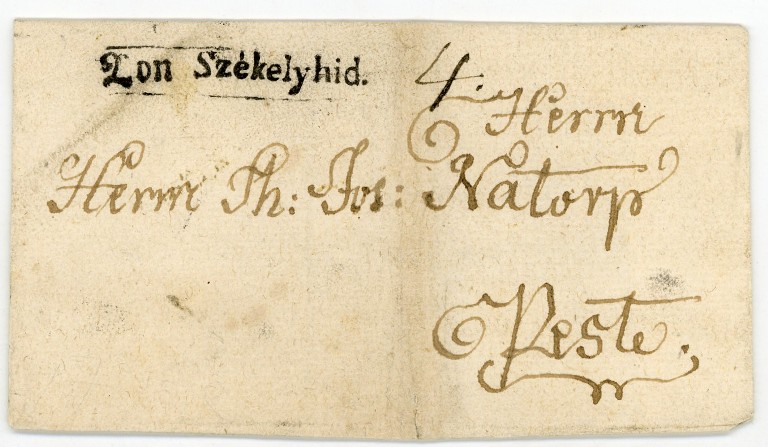 Von Székelyhid.
4.
Herrn
Herrn Ph: Jos: Natorp
Peste.